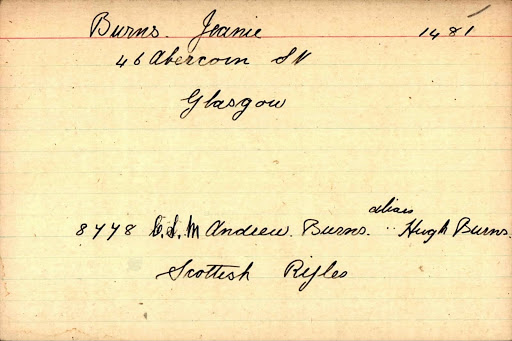 Burns. Jeanie 1481
46 Abercorn St
Glasgow
alias
8778 C.S.M Andrew. Burns. " Hugh Burns.
Scottish Rifles